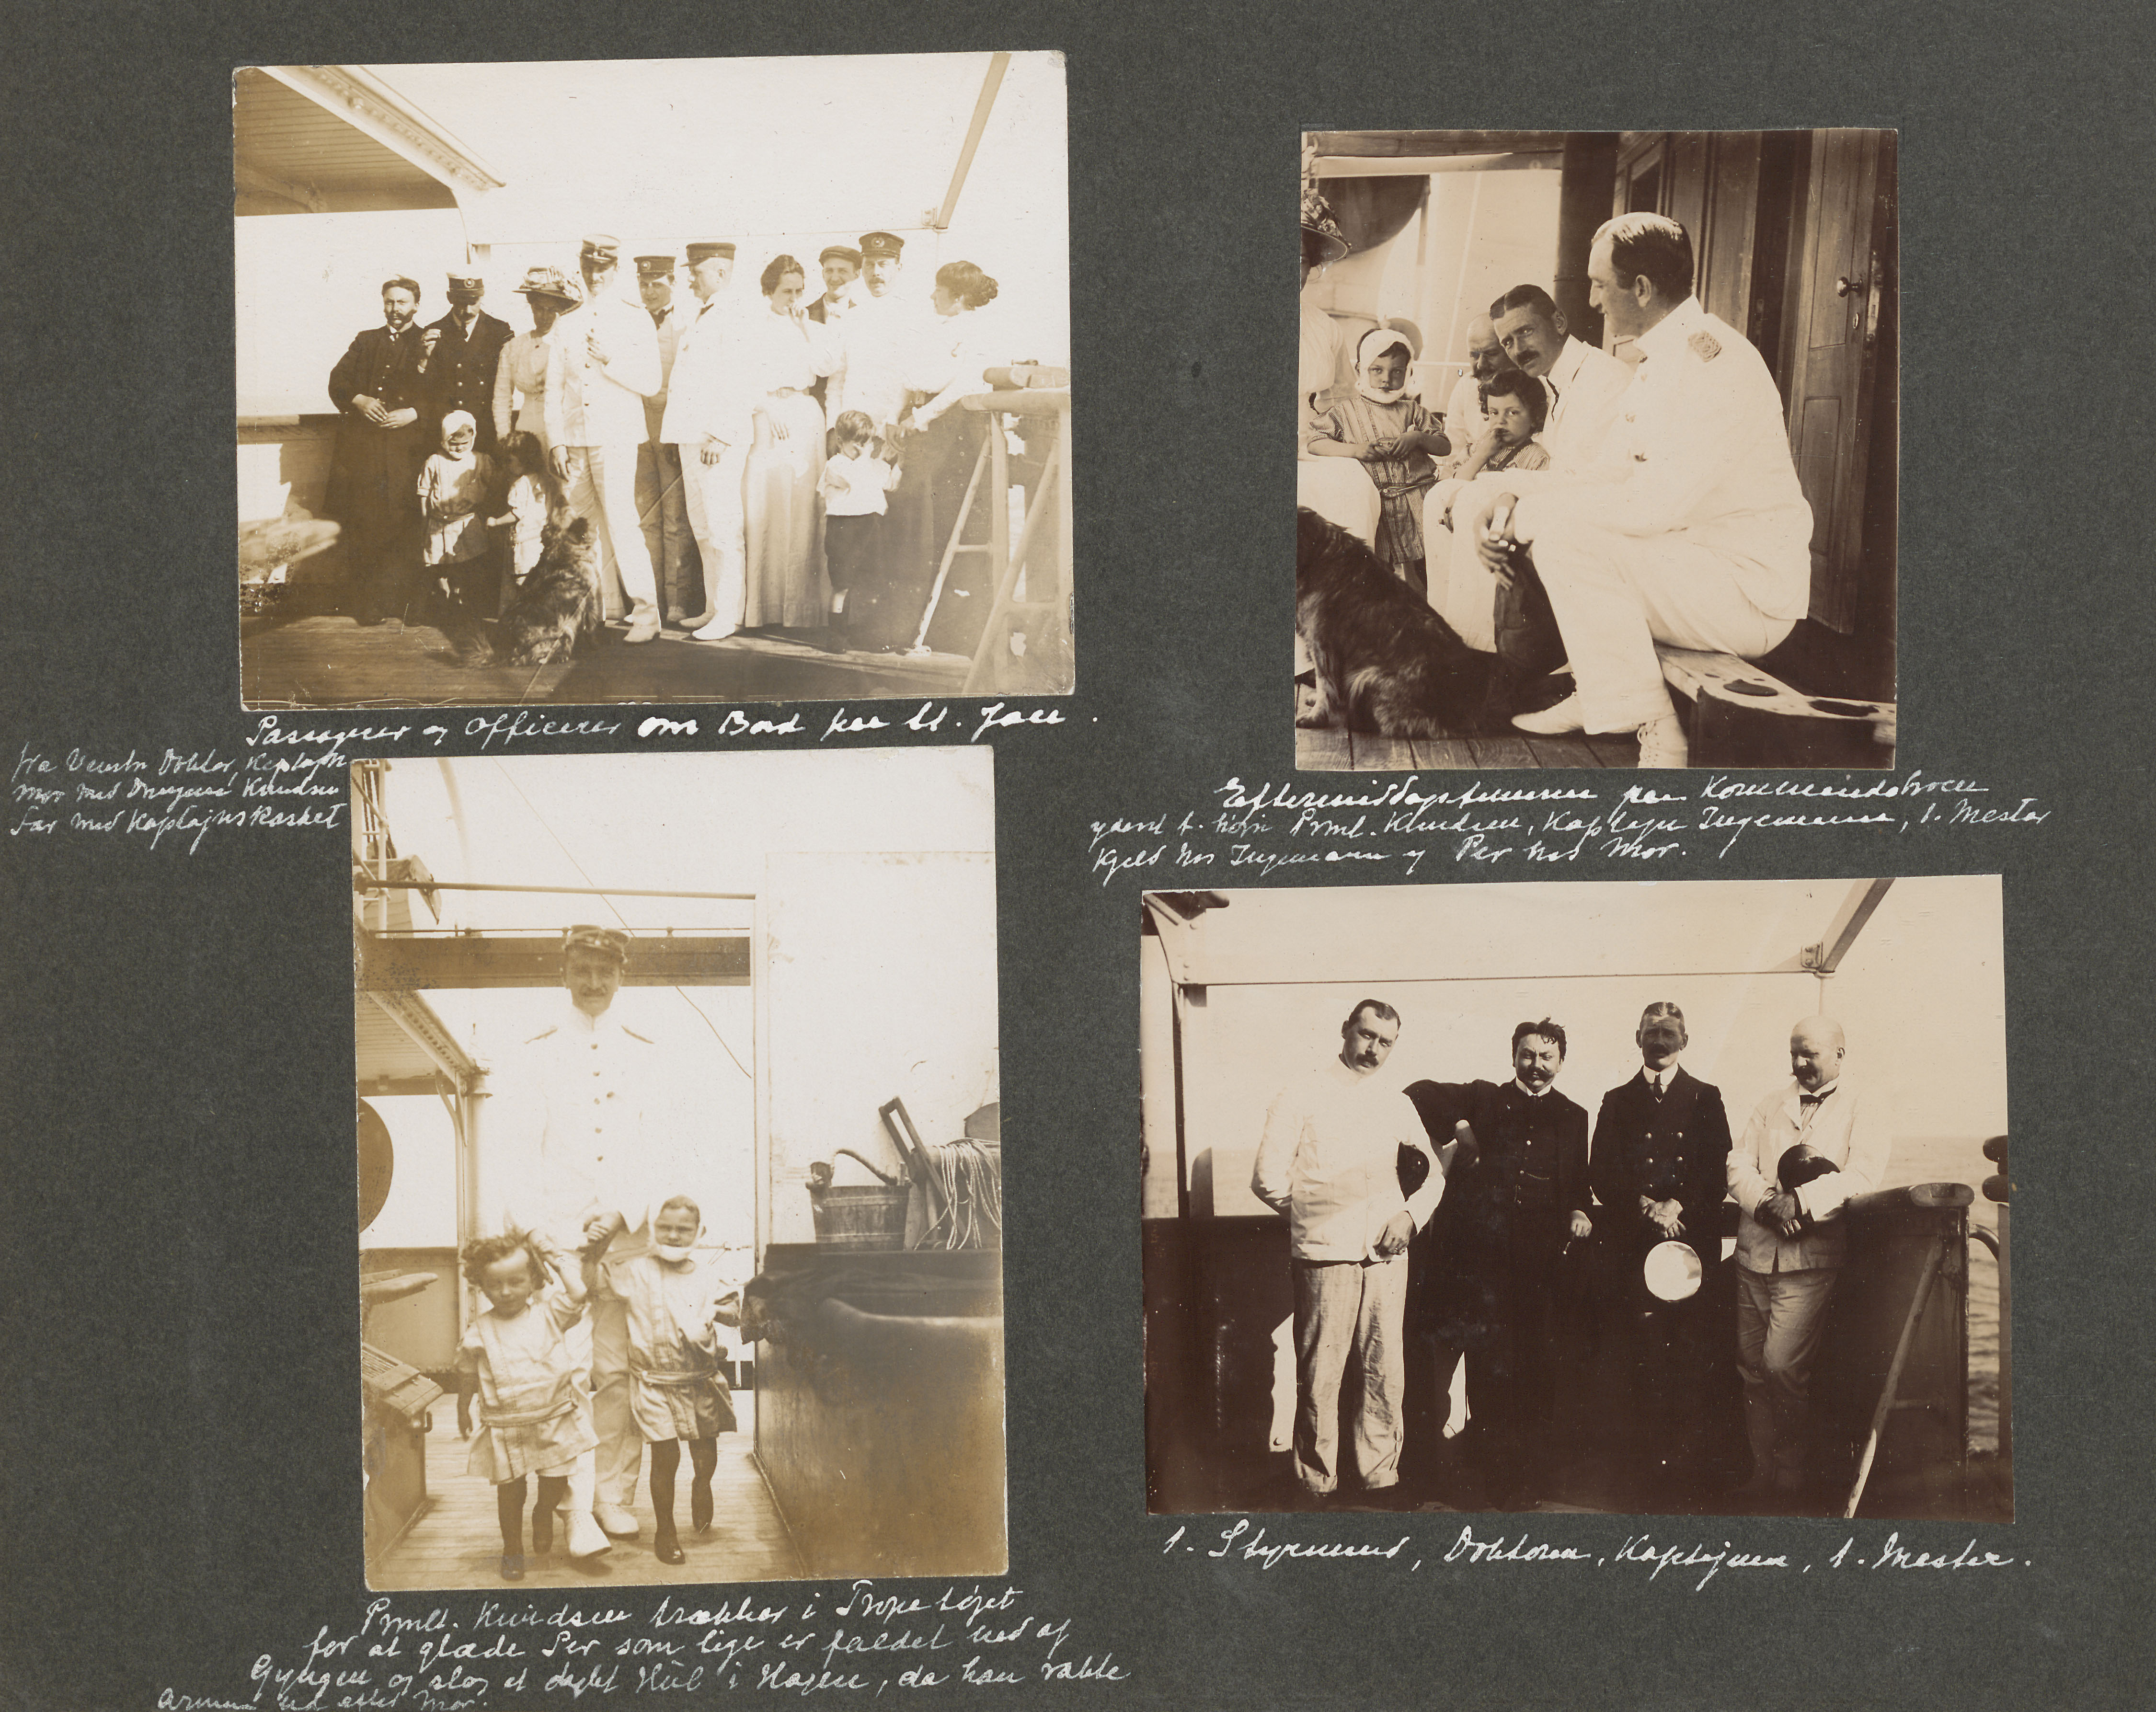 Passagerer og Officerer om Bord paa St. Jan.
fra Venstre Doktor, Kaptajn
Mor med Drengene Knudsen
Far med Kaptajns Kasket
Eftermiddagstimerne paa Kommandobroen
yderst t. højre Prmlt. Knudsen, Kaptajn Ingemann, 1. Mester
Kjeld hos Ingemann og Per hos Mor.
Prmlt. Knudsen trækker i Tropetøjet
for at glæde Per som lige er faldet ned af
Gyngen og slog et dybt Hul i Hagen, da han rakte
Armene ud efter Mor.
1. Styrmand, Doktoren, Kaptajnen, 1. Mester.